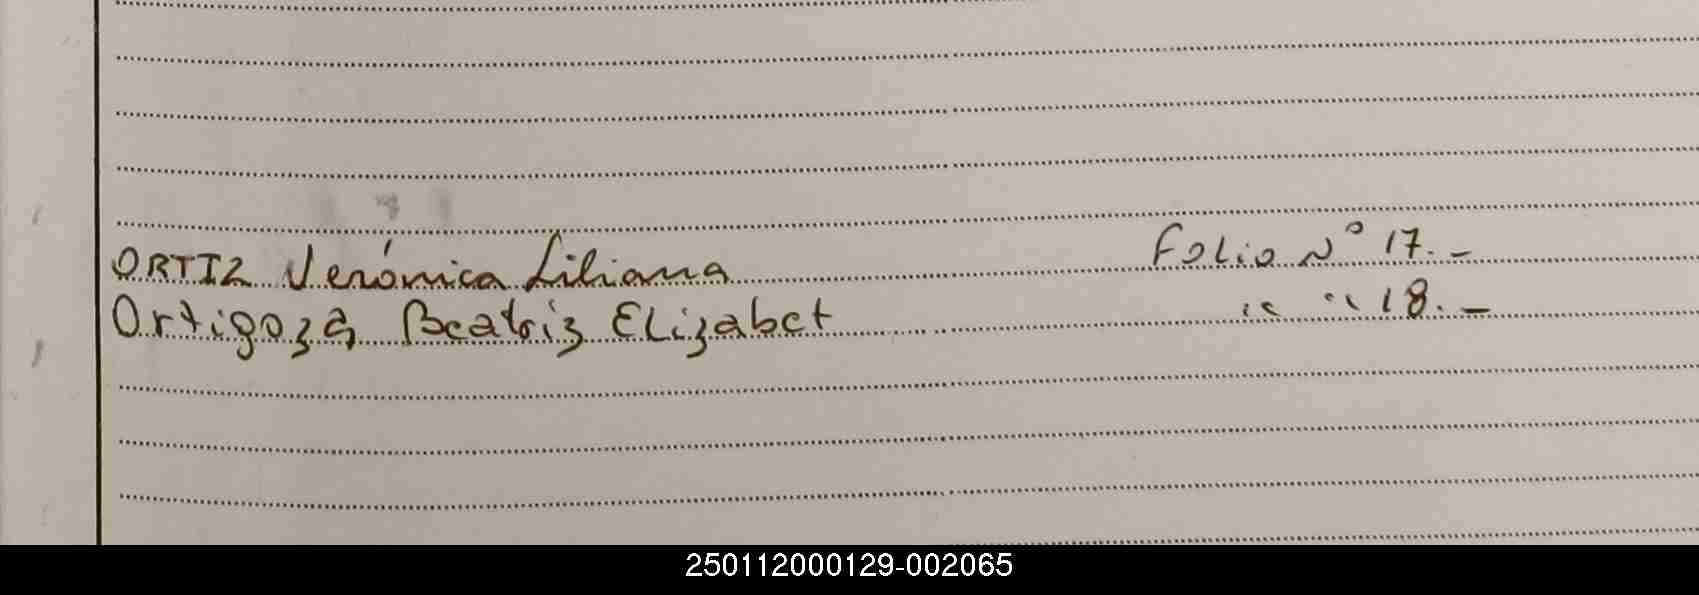 ORTIZ Verónica Liliana Folio Nº 17.-
Ortigoza Beatriz Elizabet " " 18.-
250112000129-002065